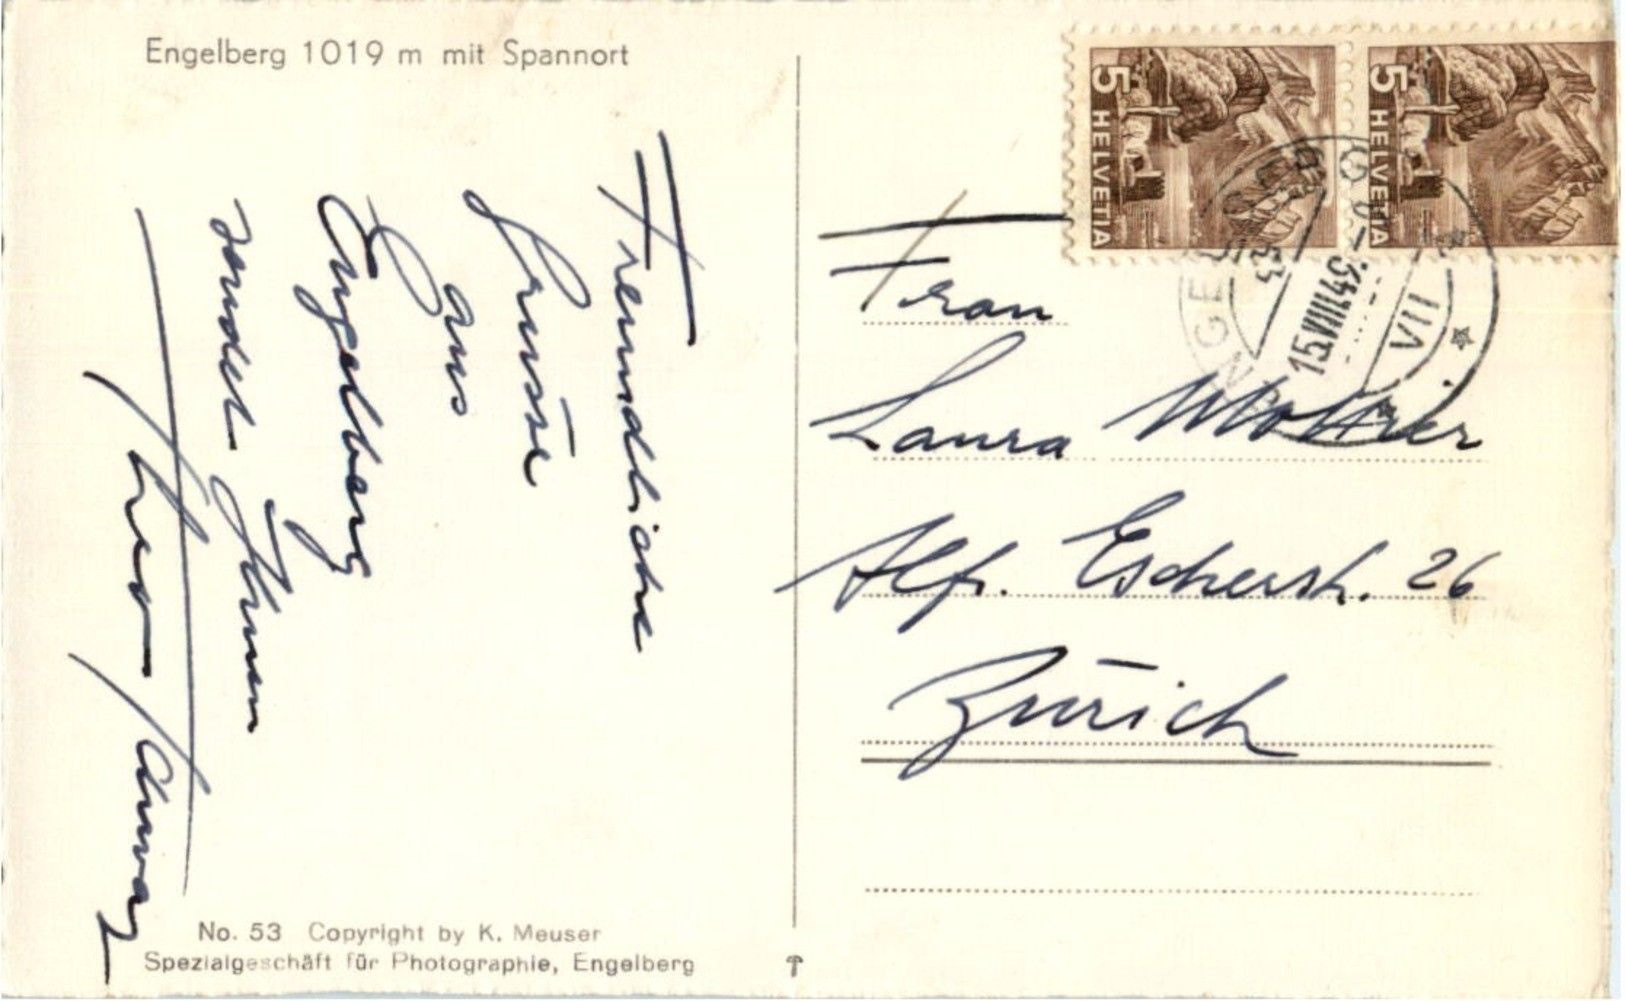 Engelberg 1019 m mit Spannort
Freundliche
Grüsse
aus
Engelberg
sendet Ihnen
No. 53 Copyright by K. Meuser
Spezialgeschäft für Photographie, Engelberg
5 HELVETIA
5 HELVETIA
15.VIII.43
VII
Frau
Laura
Alf. Escherstr. 26
Zürich